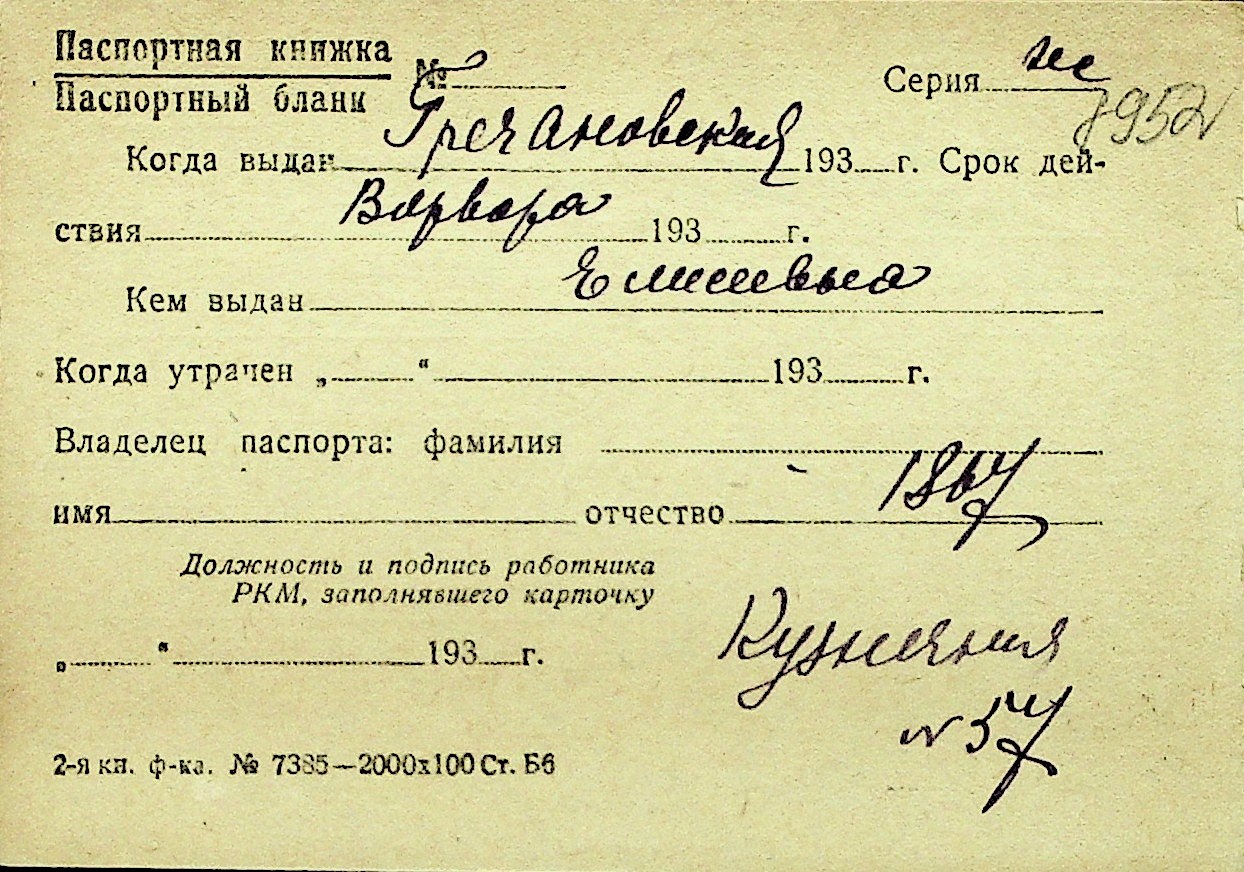 Паспортная книжка
Паспортный бланк № Серия же
7952
Гречановская
Когда выдан 193 г. Срок дей-
Варвара
ствия 193 г.
Елисеевна
Кем выдан
Когда утрачен „ “ 193 г.
Владелец паспорта: фамилия
1867
имя отчество
Должность и подпись работника
РКМ, заполнявшего карточку
Кузнечная
„ “ 193 г.
№ 57
2-я кн. ф-ка. № 7385—2000х100 Ст. Бб